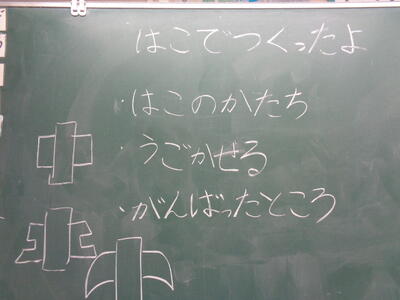 はこでつくったよ
・はこのかたち
・うごかせる
・がんばったところ